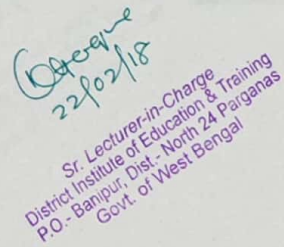 22/02/18
Sr. Lecturer-in-Charge
District Institute of Education & Training
P.O.- Banipur, Dist.- North 24 Parganas
Govt. of West Bengal